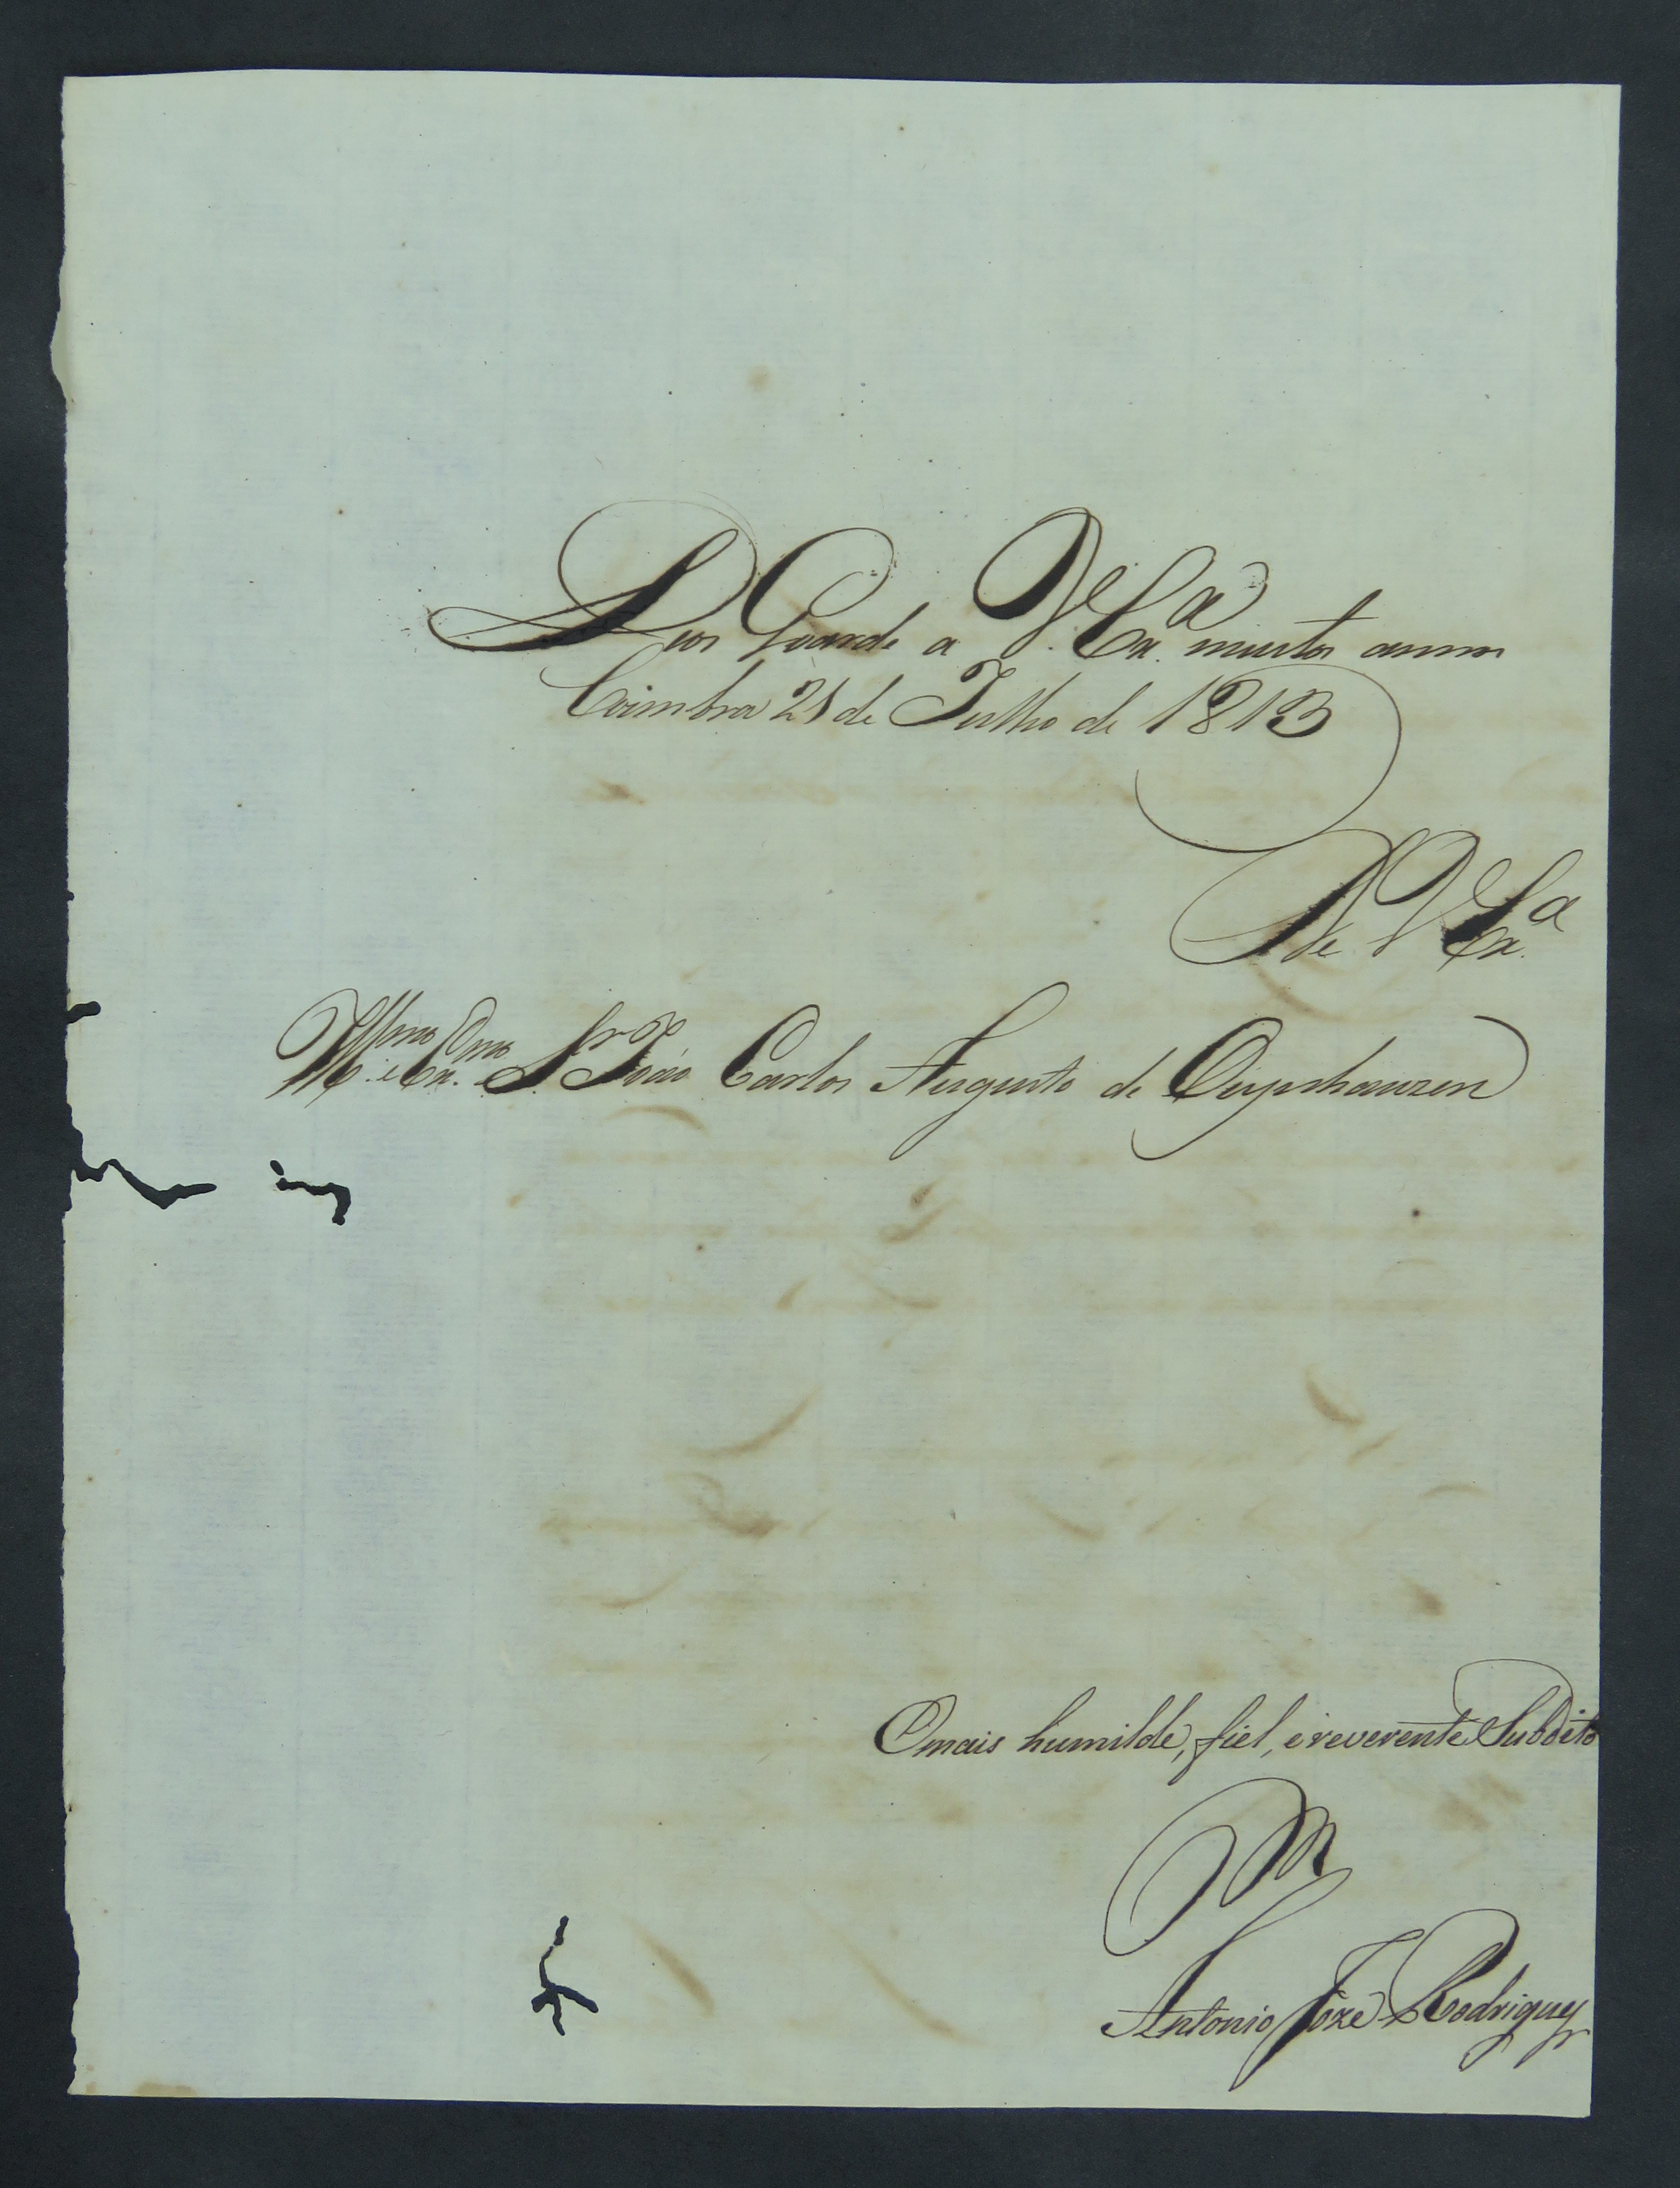 Deos Guarde a V. Exa. muitos annos
Coimbra 21 de Julho de 1813
De V. Exa.
Illmo. e Exmo. Sr. João Carlos Augusto de Oeynhauzen
O mais humilde, fiel, e reverente Subdito
Antonio Joze Rodrigues